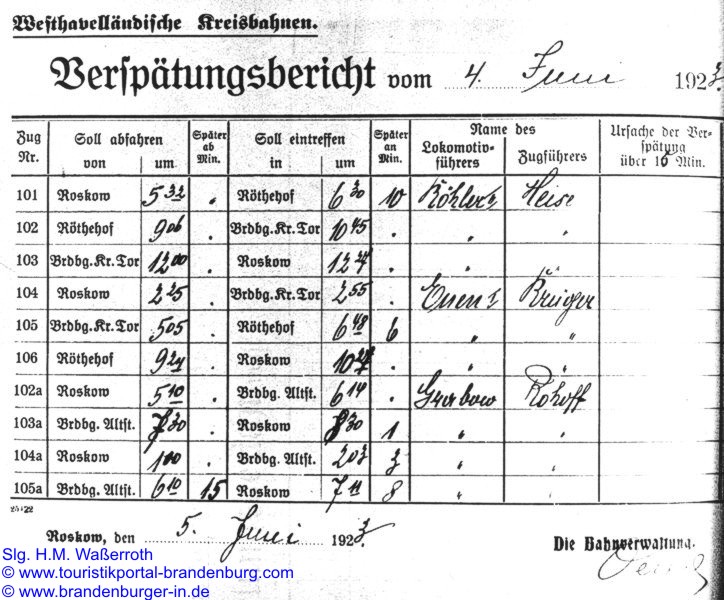 Westhavelländische Kreisbahnen.
Verspätungsbericht vom 4. Juni 1923.
Zug Nr. Soll abfahren von um Später ab Min. Soll eintreffen in um Später an Min. Name des Lokomotiv-führers Zugführers Ursache der Ver-spätung über 15 Min.
101 Roskow 5 32 . Röthehof 6 30 10 Köhler Heise
102 Röthehof 9 06 . Brdbg.Kr.Tor 10 45 . " "
103 Brdbg.Kr.Tor 12 00 . Roskow 12 24 . "
104 Roskow 2 25 . Brdbg.Kr.Tor 2 55 . Krüger
105 Brdbg.Kr.Tor 5 05 . Röthehof 6 48 6 " "
106 Röthehof 9 24 . Roskow .
102a Roskow 5 10 . Brdbg. Altst. 6 14 . Grabow Rohoff
103a Brdbg. Altst. 7 30 . Roskow 8 30 1 " "
104a Roskow 1 00 . Brdbg. Altst. 2 03 3 " "
105a Brdbg. Altst. 6 10 15 Roskow 7 11 8 " "
25 22
Roskow, den 5. Juni 1923.
Die Bahnverwaltung.
Slg. H.M. Waßerroth
© www.touristikportal-brandenburg.com
© www.brandenburger-in.de